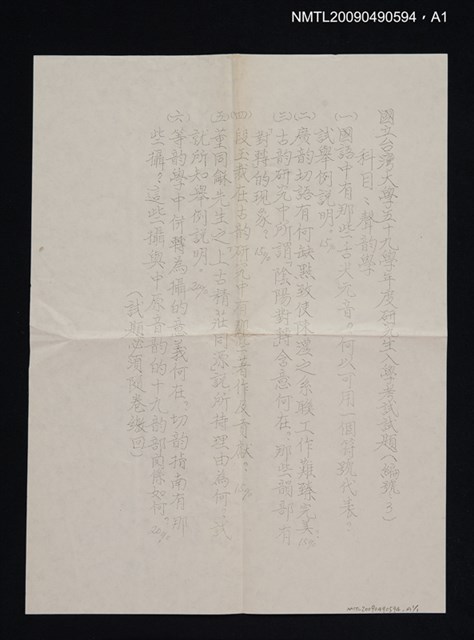 NMTL20090490594，A1
國立台灣大學五十九學年度研究生入學考試試題（編號3）
科目：聲韵學
(一)國語中有那些舌尖元音？何以可用一個符號代表？
試舉例說明。15%
(二)廣韵切語有何缺點致使陳澧之系聯工作難臻完美？15%
(三)古韵研究中所謂「陰陽對轉」含意何在？那些韵部有
對轉的現象？15%
(四)段玉裁在古韵研究中有那些著作及貢獻？15%
(五)董同龢先生之上古精莊同源說所持理由為何？試
就所知舉例說明。20%
(六)等韵學中何轉為攝的意義何在？切韵指南有那
些攝？這些攝與中原音韵的十九韵部關係如何？20%
（試題必須隨卷繳回）
NMTL20090490594_01/1